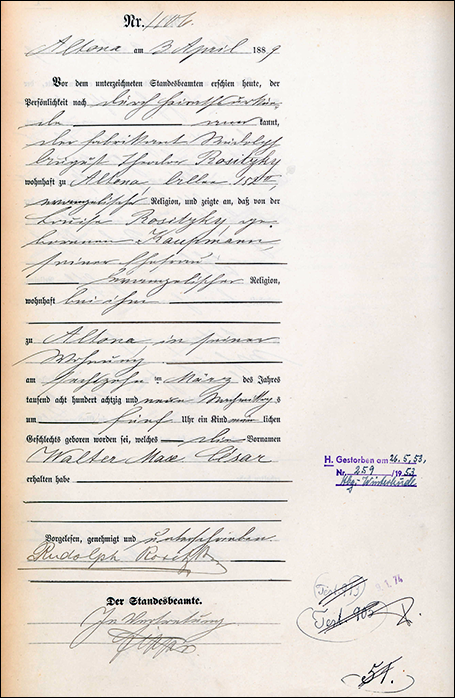 Nr. 1106.
Altona am 3 April 1889
Vor dem unterzeichneten Standesbeamten erschien heute, der
Persönlichkeit nach durch Heirathsurkun-
de kannt,
der Fabrikant Rudolph
August Theodor Rositzky
wohnhaft zu Altona,
evangelischer Religion, und zeigte an, daß von der
Louise Rositzky ge-
borenen Kaufmann,
seiner Ehefrau
evangelischer Religion,
wohnhaft bei ihm
zu Altona, in seiner
Wohnung
am sechszehn ten März des Jahres
tausend acht hundert achtzig und neun Nachmittags
um fünf Uhr ein Kind männ lichen
Geschlechts geboren worden sei, welches die Vornamen
Walter Max Cäsar
erhalten habe
Vorgelesen, genehmigt und unterschrieben.
Rudolph Rositzky
Der Standesbeamte.
In Vertretung
H. Gestorben am 26.5.53,
Nr. 259 / 1953
Hbg.-Winterhude